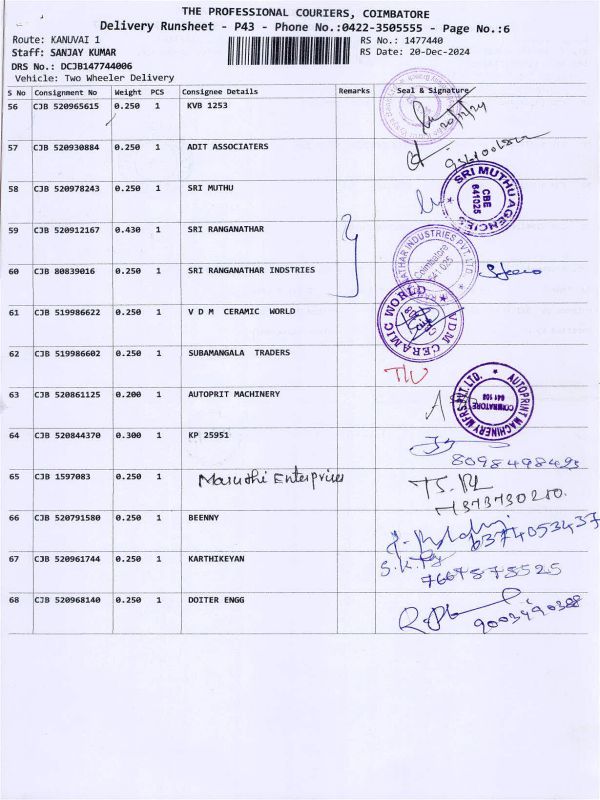 THE PROFESSIONAL COURIERS, COIMBATORE
Delivery Runsheet - P43 - Phone No.:0422-3505555 - Page No.:6
Route: KANUVAI 1
RS No.: 1477440
Staff: SANJAY KUMAR
RS Date: 20-Dec-2024
DRS No.: DCJB147744006
Vehicle: Two Wheeler Delivery
S No Consignment No Weight PCS Consignee Details Remarks Seal & Signature
56 CJB 520965615 0.250 1 KVB 1253
20/12/24
57 CJB 520930884 0.250 1 ADIT ASSOCIATERS
58 CJB 520978243 0.250 1 SRI MUTHU
SRI MUTHU AGENCIES
CBE
641025
59 CJB 520912167 0.430 1 SRI RANGANATHAR
60 CJB 80839016 0.250 1 SRI RANGANATHAR INDSTRIES
INDUSTRIES PVT. LTD.
Coimbatore
641 025
61 CJB 519986622 0.250 1 V D M CERAMIC WORLD
VDM CERAMIC WORLD
62 CJB 519986602 0.250 1 SUBAMANGALA TRADERS
63 CJB 520861125 0.200 1 AUTOPRIT MACHINERY
AUTOPRINT MACHINERY MFRS PVT. LTD.
COIMBATORE
64 CJB 520844370 0.300 1 KP 25951
8098498493
65 CJB 1597083 0.250 1 Maruthi Enterprises
66 CJB 520791580 0.250 1 BEENNY
6374053437
67 CJB 520961744 0.250 1 KARTHIKEYAN
68 CJB 520968140 0.250 1 DOITER ENGG